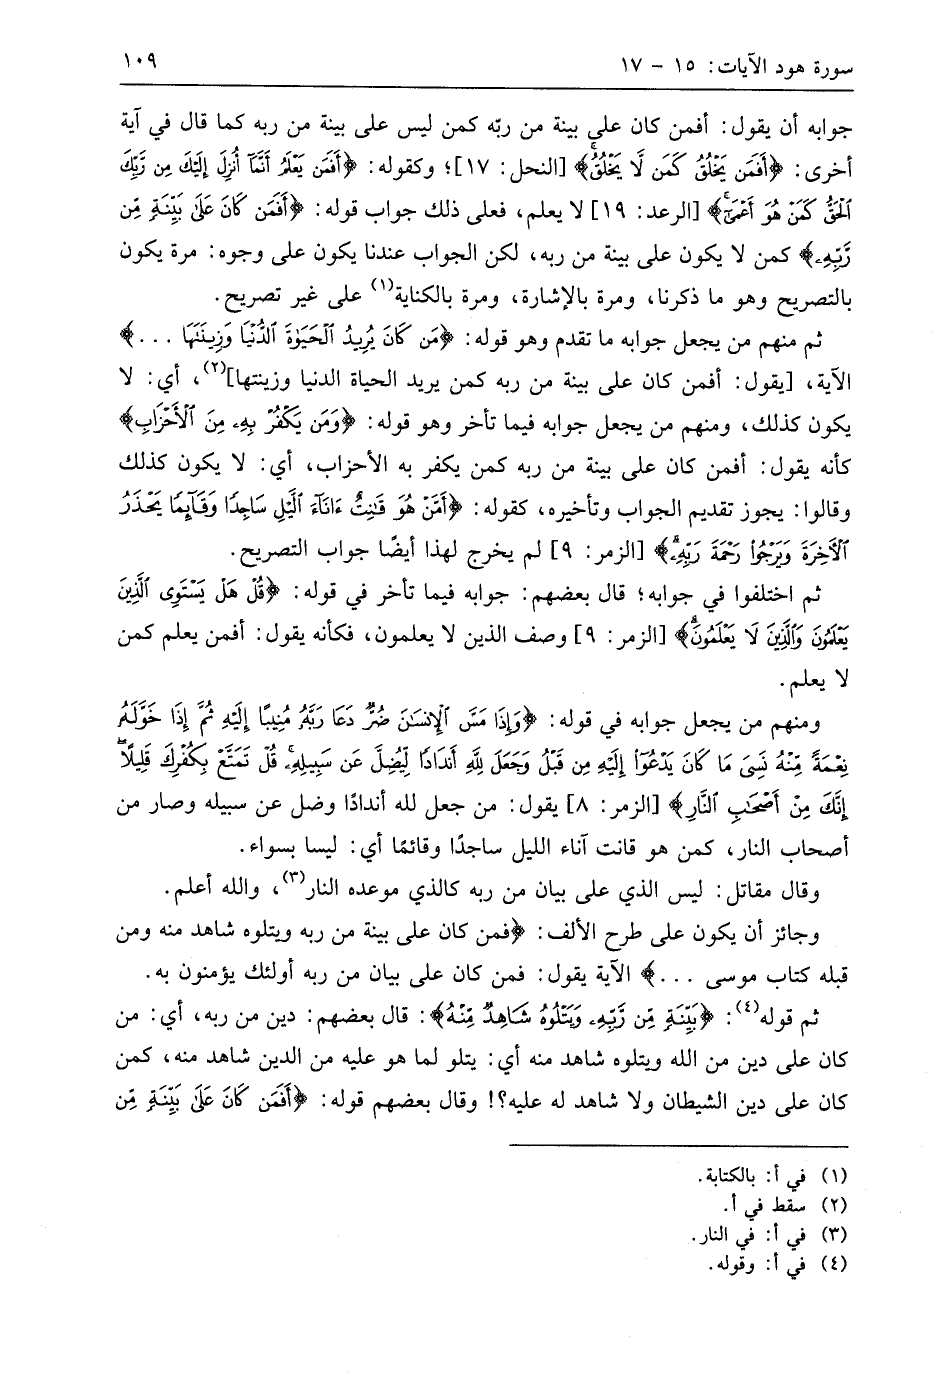 سورة هود الآيات: ١٥ - ١٧ ١٠٩
جوابه أن يقول: أفمن كان على بينة من ربّه كمن ليس على بينة من ربه كما قال في آية
أخرى: ﴿أَفَمَن يَخْلُقُ كَمَن لَّا يَخْلُقُۚ﴾ [النحل: ١٧]؛ وكقوله: ﴿أَفَمَن يَعْلَمُ أَنَّمَآ أُنزِلَ إِلَيْكَ مِن رَّبِّكَ
ٱلْحَقُّ كَمَنْ هُوَ أَعْمَىٰٓۚ﴾ [الرعد: ١٩] لا يعلم، فعلى ذلك جواب قوله: ﴿أَفَمَن كَانَ عَلَىٰ بَيِّنَةٍ مِّن
رَّبِّهِۦ﴾ كمن لا يكون على بينة من ربه، لكن الجواب عندنا يكون على وجوه: مرة يكون
بالتصريح وهو ما ذكرنا، ومرة بالإشارة، ومرة بالكناية(١) على غير تصريح.
ثم منهم من يجعل جوابه ما تقدم وهو قوله: ﴿مَن كَانَ يُرِيدُ ٱلْحَيَوٰةَ ٱلدُّنْيَا وَزِينَتَهَا ...﴾
الآية، [يقول: أفمن كان على بينة من ربه كمن يريد الحياة الدنيا وزينتها](٢)، أي: لا
يكون كذلك، ومنهم من يجعل جوابه فيما تأخر وهو قوله: ﴿وَمَن يَكْفُرْ بِهِۦ مِنَ ٱلْأَحْزَابِ﴾
كأنه يقول: أفمن كان على بينة من ربه كمن يكفر به الأحزاب، أي: لا يكون كذلك
وقالوا: يجوز تقديم الجواب وتأخيره، كقوله: ﴿أَمَّنْ هُوَ قَـٰنِتٌ ءَانَآءَ ٱلَّيْلِ سَاجِدًا وَقَآئِمًا يَحْذَرُ
ٱلْـَٔاخِرَةَ وَيَرْجُوا۟ رَحْمَةَ رَبِّهِۦۗ﴾ [الزمر: ٩] لم يخرج لهذا أيضًا جواب التصريح.
ثم اختلفوا في جوابه؛ قال بعضهم: جوابه فيما تأخر في قوله: ﴿قُلْ هَلْ يَسْتَوِى ٱلَّذِينَ
يَعْلَمُونَ وَٱلَّذِينَ لَا يَعْلَمُونَۗ﴾ [الزمر: ٩] وصف الذين لا يعلمون، فكأنه يقول: أفمن يعلم كمن
لا يعلم.
ومنهم من يجعل جوابه في قوله: ﴿وَإِذَا مَسَّ ٱلْإِنسَـٰنَ ضُرٌّ دَعَا رَبَّهُۥ مُنِيبًا إِلَيْهِ ثُمَّ إِذَا خَوَّلَهُۥ
نِعْمَةً مِّنْهُ نَسِىَ مَا كَانَ يَدْعُوٓا۟ إِلَيْهِ مِن قَبْلُ وَجَعَلَ لِلَّهِ أَندَادًا لِّيُضِلَّ عَن سَبِيلِهِۦۚ قُلْ تَمَتَّعْ بِكُفْرِكَ قَلِيلًاۖ
إِنَّكَ مِنْ أَصْحَـٰبِ ٱلنَّارِ﴾ [الزمر: ٨] يقول: من جعل لله أندادًا وضل عن سبيله وصار من
أصحاب النار، كمن هو قانت آناء الليل ساجدًا وقائمًا أي: ليسا بسواء.
وقال مقاتل: ليس الذي على بيان من ربه كالذي موعده النار(٣)، والله أعلم.
وجائز أن يكون على طرح الألف: ﴿فمن كان على بينة من ربه ويتلوه شاهد منه ومن
قبله كتاب موسى ...﴾ الآية يقول: فمن كان على بيان من ربه أولئك يؤمنون به.
ثم قوله(٤): ﴿بَيِّنَةٍ مِّن رَّبِّهِۦ وَيَتْلُوهُ شَاهِدٌ مِّنْهُ﴾: قال بعضهم: دين من ربه، أي: من
كان على دين من الله ويتلوه شاهد منه أي: يتلو لما هو عليه من الدين شاهد منه، كمن
كان على دين الشيطان ولا شاهد له عليه؟! وقال بعضهم قوله: ﴿أَفَمَن كَانَ عَلَىٰ بَيِّنَةٍ مِّن
(١) في أ: بالكتابة.
(٢) سقط في أ.
(٣) في أ: في النار.
(٤) في أ: وقوله.